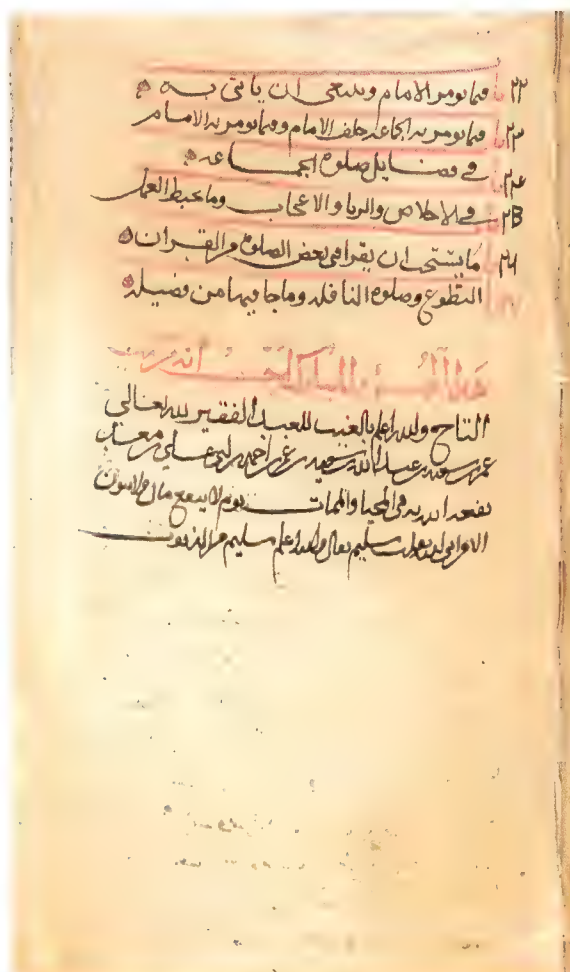 ٢٢ فيما يومر الامام وينبغي ان ياتي به
٢٣ فيما يومر به الجماعه خلف الامام وفيما يومر به الامام
٢٤ في فضايل صلوة الجماعه
٢٥ في الاخلاص والريا والاعجاب وما يحبط العمل
٢٦ ما يستحب ان يقرا في بعض الصلوة من القران
٢٧ التطوع وصلوة النافله وما جا فيها من فضيله
هذا الجزؤ المبارك
التاج والله اعلم بالغيب للعبد الفقير لله تعالى
عمر بن سعيد بن عبد الله بن سعيد بن عمر بن احمد بن ابي علي بن معد
نفعه الله به في المحيا والممات يوم لا ينفع مال ولا بنون
الا من اتى الله بقلب سليم والله اعلم سليم من الذنوب